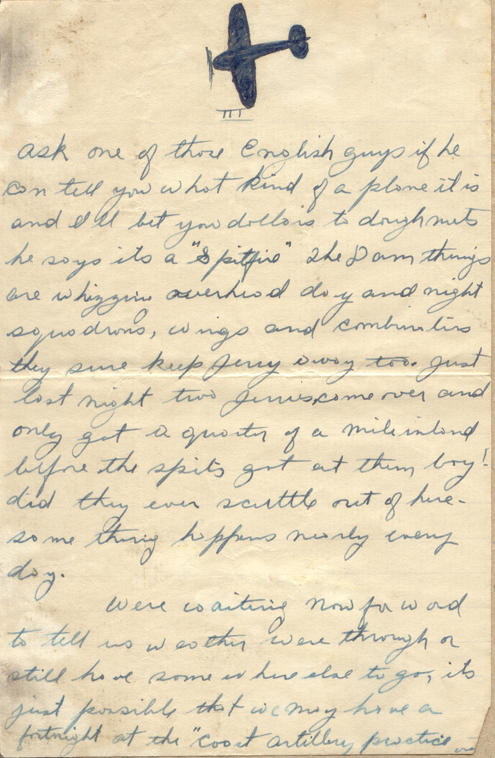 ask one of those English guys if he
can tell you what kind of a plane it is
and I'll bet you dollars to doughnuts
he says its a "Spitfire" The Dam things
are whizzing overhead day and night
squadrons, wings and
they sure keep Jerry away too. Just
last night two Jerries come over and
only got a quarter of a mile inland
before the spits got at them boy!
did they ever scuttle out of here -
some thing happens nearly every
day.
Were waiting now for word
to tell us weather were through or
still have some where else to go, its
just possible that we may have a
fortnight at the "coast artillery practice